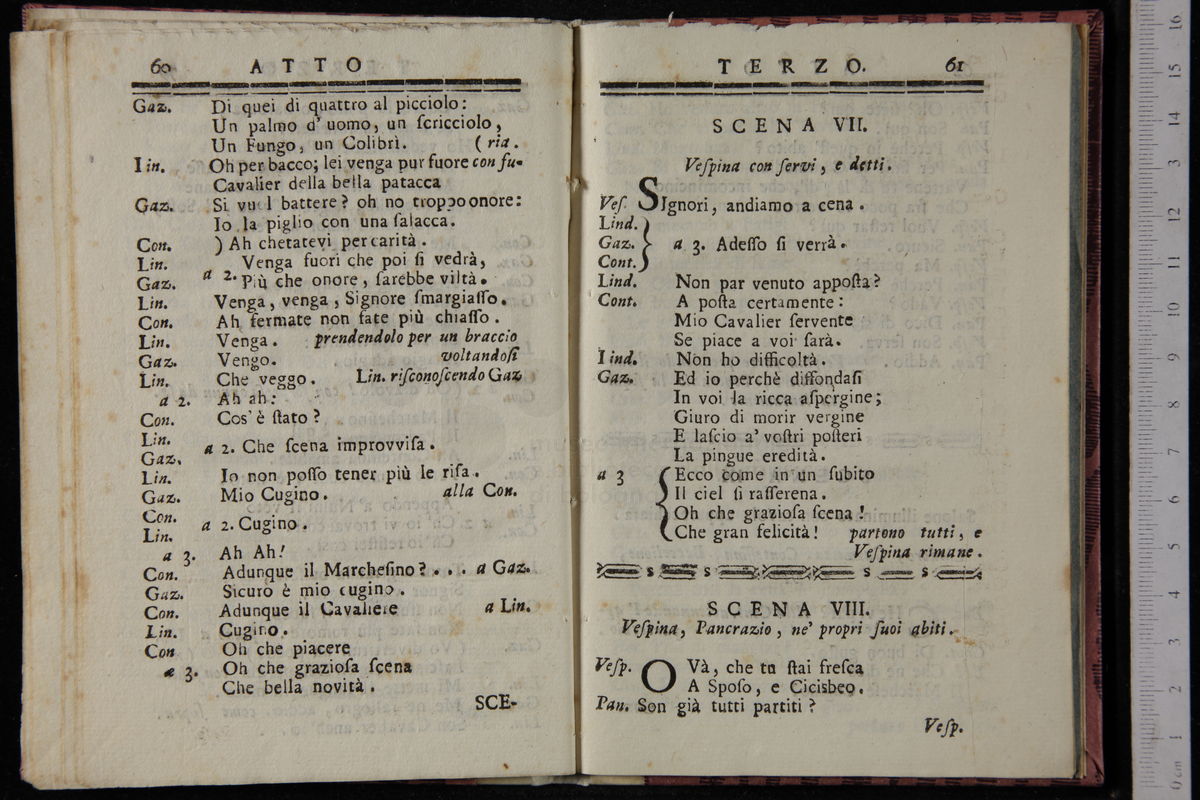 60 ATTO
Gaz. Di quei di quattro al picciolo:
Un palmo d' uomo, un ſcricciolo,
Un Fungo, un Colibrì. (ria.
Lin. Oh per bacco; lei venga pur fuore con fu-
Cavalier della bella patacca
Gaz. Si vuol battere? oh no troppo onore:
Io la piglio con una ſalacca.
Con. ) Ah chetatevi per carità.
Lin. Venga fuori che poi ſi vedrà,
Gaz. a 2. Più che onore, ſarebbe viltà.
Lin. Venga, venga, Signore ſmargiaſſo.
Con. Ah fermate non fate più chiaſſo.
Lin. Venga. prendendolo per un braccio
Gaz. Vengo. voltandoſi
Lin. Che veggo. Lin. riſconoſcendo Gaz
a 2. Ah ah:
Con. Cos' è ſtato?
Lin.
Gaz. a 2. Che ſcena improvviſa.
Lin. Io non poſſo tener più le riſa.
Gaz. Mio Cugino. alla Con.
Con.
Lin. a 2. Cugino.
a 3. Ah Ah!
Con. Adunque il Marcheſino? . . . a Gaz.
Gaz. Sicuro è mio cugino.
Con. Adunque il Cavaliere a Lin.
Lin. Cugino.
Con Oh che piacere
a 3. Oh che grazioſa ſcena
Che bella novità.
SCE-
TERZO. 61
SCENA VII.
Veſpina con ſervi, e detti.
Veſ. SIgnori, andiamo a cena.
Lind.
Gaz. a 3. Adeſſo ſi verrà.
Cont.
Lind. Non par venuto appoſta?
Cont. A poſta certamente:
Mio Cavalier ſervente
Se piace a voi ſarà.
Lind. Non ho difficoltà.
Gaz. Ed io perchè diffondaſi
In voi la ricca aſpergine;
Giuro di morir vergine
E laſcio a' voſtri poſteri
La pingue eredità.
a 3 Ecco come in un ſubito
Il ciel ſi raſſerena.
Oh che grazioſa ſcena!
Che gran felicità! partono tutti, e
Veſpina rimane.
SCENA VIII.
Veſpina, Pancrazio, ne' propri ſuoi abiti.
Veſp. OVà, che tu ſtai freſca
A Spoſo, e Cicisbeo.
Pan. Son già tutti partiti?
Veſp.